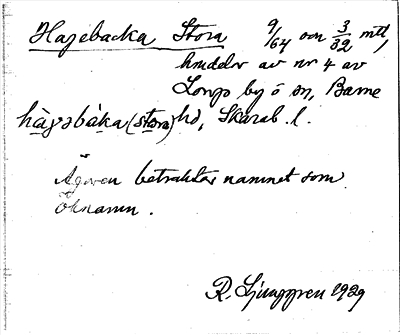 Hagebacka Stora 9/64 och 3/32 mtl,
hvuddelar av nr 4 av
Longs by ö sn, Barne
hàgəbàka (stora) hd, Skarab. l.
Ägaren betraktar namnet som
öknamn.
R. Ljunggren 1929